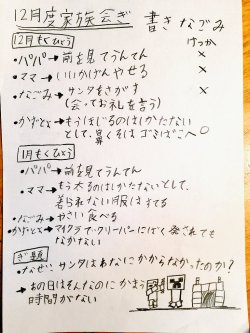 12月度家族会ぎ 書き なごみ
12月もくひょう けっか
・パパ→前を見てうんてん ×
・ママ→いいかげんやせる ×
・なごみ→サンタをさがす ×
(会ってお礼を言う)
かずと→もうはじるのはしかたない
として、鼻くそはゴミばこへ ○
1月もくひょう
・パパ→前を見てうんてん
・ママ→もう太るのはしかたないとして
着られない服はすてる
・なごみ→やさい食べる
・かずと→マイクラでクリーパーにばくはされても
なかない
ぎ題
・なぜサンタはわなにかからなかったのか?
→あの日はそんなのにかまう
時間がない